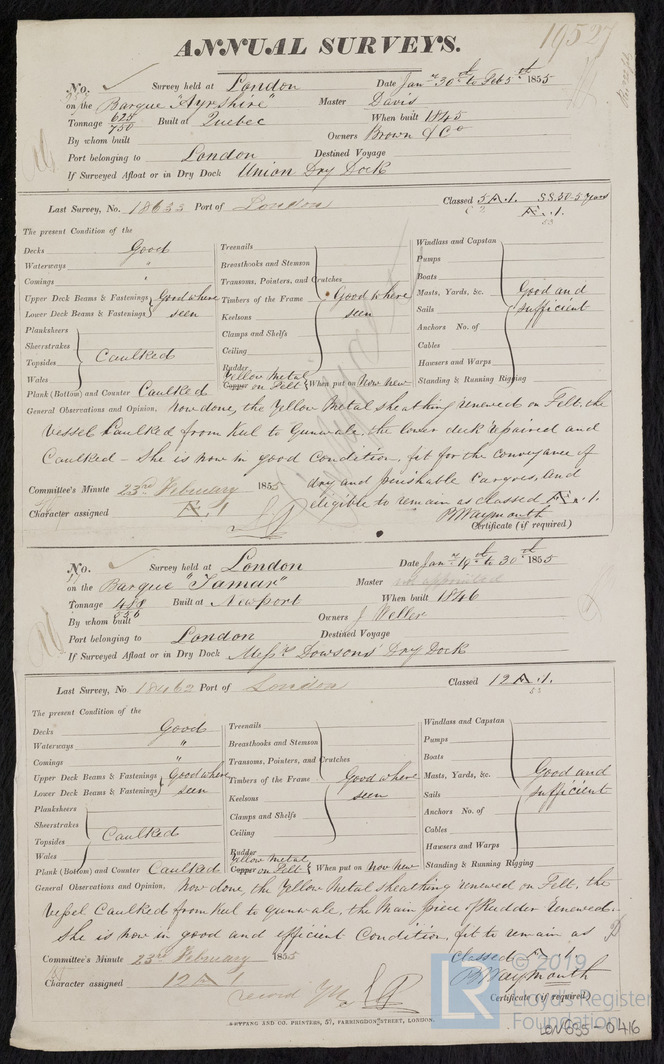 19527
ANNUAL SURVEYS.
No. Survey held at London Date Jany 30th to Feby 5th 1855
on the Barque "Ayrshire" Master Davis
Tonnage 624/750 Built at Quebec When built 1845
By whom built Owners Brown & Co
Port belonging to London Destined Voyage
If Surveyed Afloat or in Dry Dock Union Dry Dock
Last Survey, No. 18633 Port of London Classed 5 A.1. SS.30-5 years
A.1.
53
The present Condition of the
Decks Good
Waterways "
Comings "
Upper Deck Beams & Fastenings Good where
Lower Deck Beams & Fastenings seen
Planksheers
Sheerstrakes
Topsides Caulked
Wales
Plank (Bottom) and Counter Caulked
Treenails
Breasthooks and Stemson
Transoms, Pointers, and Crutches
Timbers of the Frame Good where
Keelsons seen
Clamps and Shelfs
Ceiling
Rudder
Yellow Metal
Copper on Felt When put on Now New
Windlass and Capstan
Pumps
Boats
Masts, Yards, &c. Good and
Sails sufficient
Anchors No. of
Cables
Hawsers and Warps
Standing & Running Rigging
General Observations and Opinion, Now done, the Yellow Metal sheathing renewed on Felt, the
Vessel Caulked from Keel to Gunwale, the lower deck repaired and
Caulked - She is now in good Condition, fit for the conveyance of
dry and perishable Cargoes, and
Committee's Minute 23rd February 1855
eligible to remain as classed A.1.
Character assigned A.1
P Waymouth
Certificate (if required)
No. Survey held at London Date Jany 19th to 30th 1855
on the Barque "Tamar" Master not appointed
Tonnage Built at Newport When built 1846
By whom built Owners J Weller
Port belonging to London Destined Voyage
If Surveyed Afloat or in Dry Dock Messrs Dowsons' Dry Dock
Last Survey, No 18462 Port of London Classed 12 A.1.
53
The present Condition of the
Decks Good
Waterways "
Comings "
Upper Deck Beams & Fastenings Good where
Lower Deck Beams & Fastenings seen
Planksheers
Sheerstrakes
Topsides Caulked
Wales
Plank (Bottom) and Counter Caulked
Treenails
Breasthooks and Stemson
Transoms, Pointers, and Crutches
Timbers of the Frame Good where
Keelsons seen
Clamps and Shelfs
Ceiling
Rudder
Yellow Metal
Copper on Felt When put on Now New
Windlass and Capstan
Pumps
Boats
Masts, Yards, &c. Good and
Sails sufficient
Anchors No. of
Cables
Hawsers and Warps
Standing & Running Rigging
General Observations and Opinion, Now done, the Yellow Metal sheathing renewed on Felt, the
Vessel Caulked from Keel to Gunwale, the Main piece of Rudder Renewed.
She is now in good and efficient Condition, fit to remain as
Committee's Minute 23rd February 1855
classed A.1
Character assigned 12 A 1
P Waymouth
Certificate (if required)
SEYFANG AND CO. PRINTERS, 57, FARRINGDON STREET, LONDON.
LR © 2019
Lloyd's Register
Foundation
LON635-0416